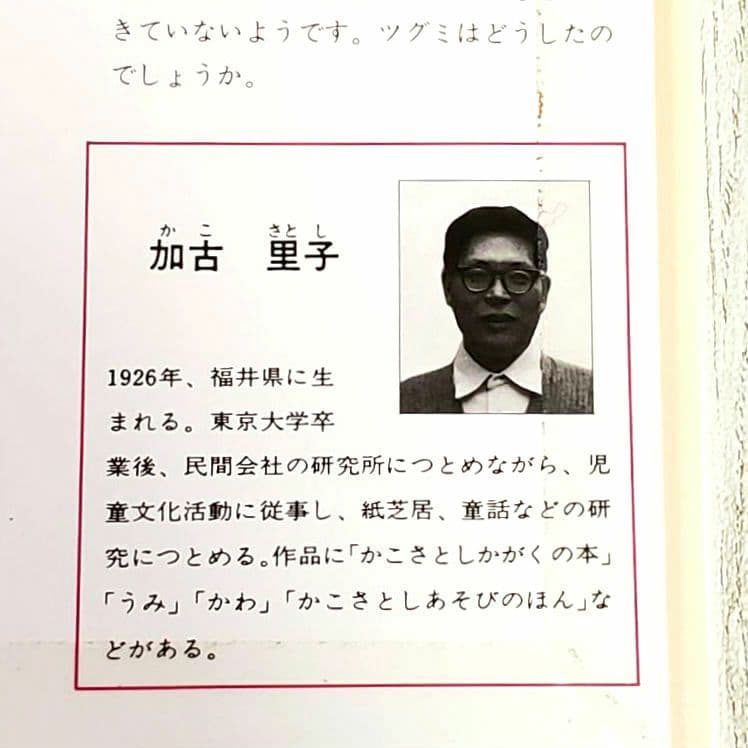 きていないようです。ツグミはどうしたの
でしょうか。
かこ さとし
加古 里子
1926年、福井県に生
まれる。東京大学卒
業後、民間会社の研究所につとめながら、児
童文化活動に従事し、紙芝居、童話などの研
究につとめる。作品に「かこさとしかがくの本」
「うみ」「かわ」「かこさとしあそびのほん」な
どがある。